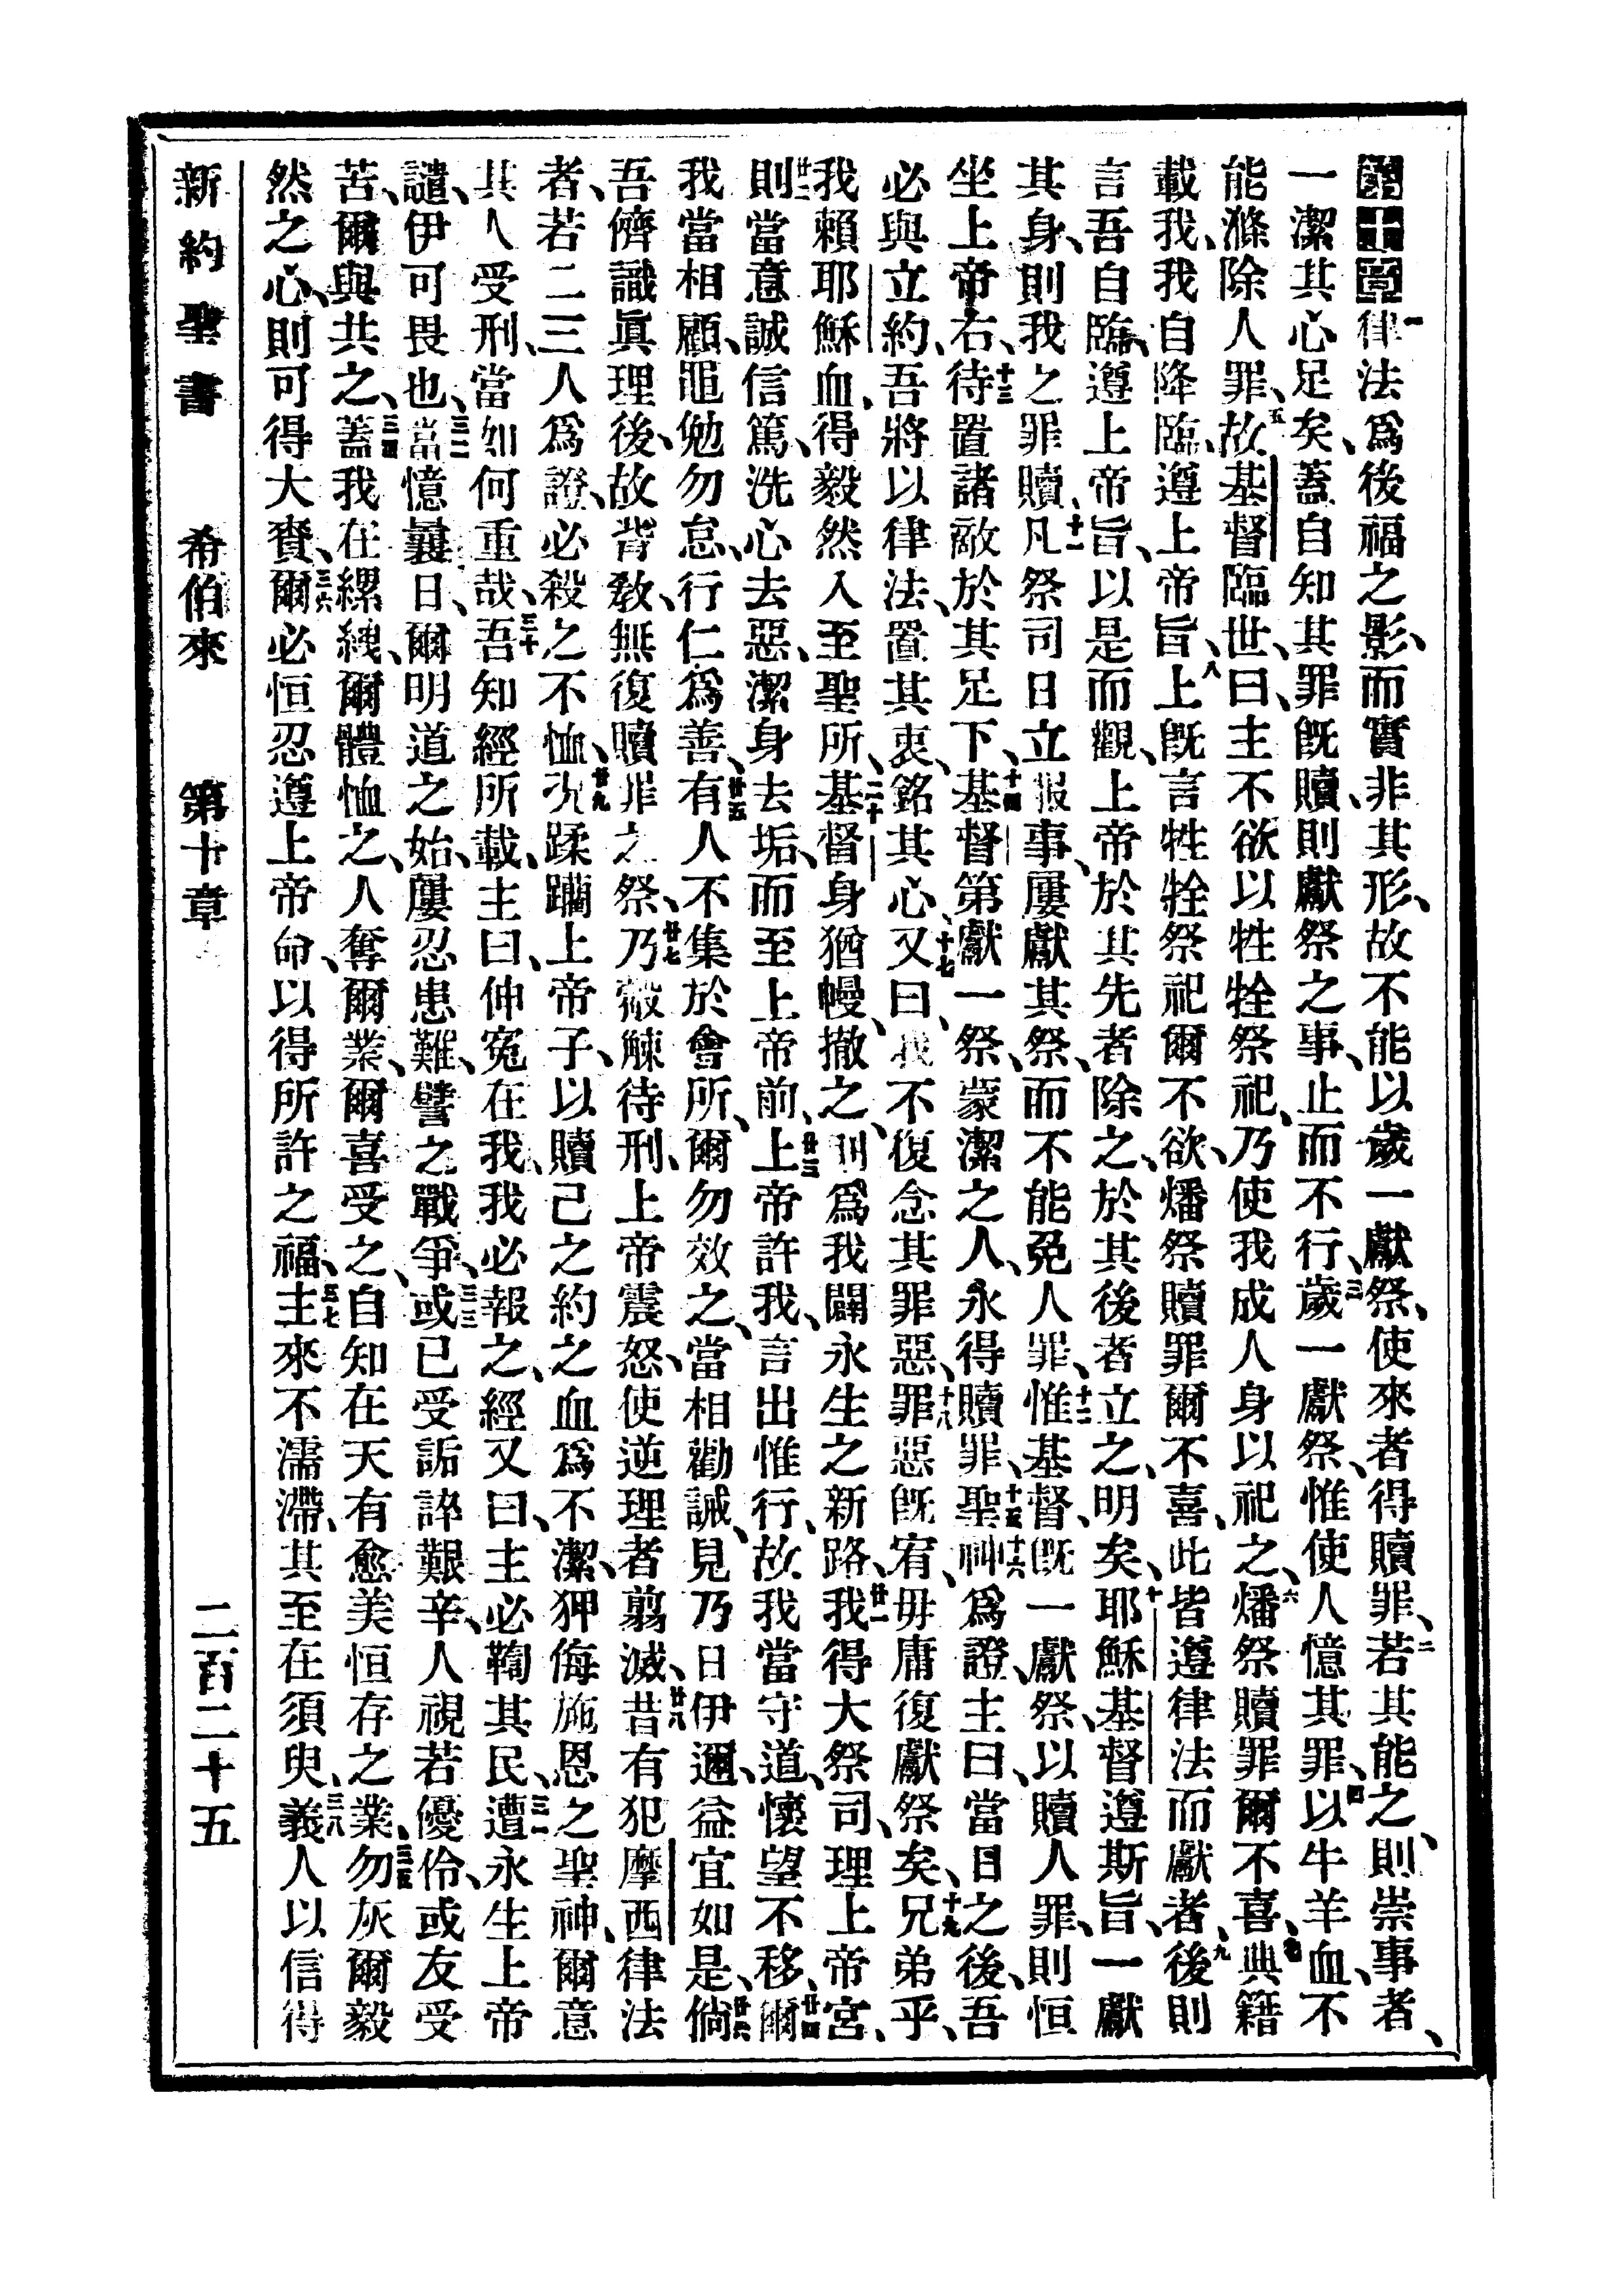 第十章一律法爲後福之影、而實非其形、故不能以歲一獻祭、使來者得贖罪、二若其能之、則崇事者、
一潔其心足矣、蓋自知其罪旣贖、則獻祭之事、止而不行、三歲一獻祭、惟使人憶其罪、四以牛羊血、不
能滌除人罪、五故基督臨世、曰、主不欲以牲牷祭祀、乃使我成人身以祀之、六燔祭贖罪爾不喜、七典籍
載我、我自降臨、遵上帝旨、八上旣言牲牷祭祀爾不欲、燔祭贖罪爾不喜、此皆遵律法而獻者、九後則
言吾自臨、遵上帝旨、以是而觀、上帝於其先者除之、於其後者立之、明矣、十耶穌基督遵斯旨、一獻
其身、則我之罪贖、十一凡祭司日立服事、屢獻其祭、而不能免人罪、十二惟基督、旣一獻祭、以贖人罪、則恒
坐上帝右、十三待置諸敵於其足下、十四基督第獻一祭、蒙潔之人、永得贖罪、十五聖神爲證、十六主曰、當日之後、吾
必與立約、吾將以律法、置其衷、銘其心、十七又曰、我不復念其罪惡、十八罪惡旣宥、毋庸復獻祭矣、十九兄弟乎、
我賴耶穌血、得毅然入至聖所、二十基督身猶幔、撤之、則爲我闢永生之新路、廿一我得大祭司、理上帝宮、
廿二則當意誠信篤、洗心去惡、潔身去垢、而至上帝前、廿三上帝許我、言出惟行、故我當守道、懷望不移、廿四爾
我當相顧、黽勉勿怠、行仁爲善、廿五有人不集於會所、爾勿效之、當相勸誡、見乃日伊邇、益宜如是、廿六倘
吾儕識眞理後、故背敎、無復贖罪之祭、廿七乃觳觫待刑、上帝震怒、使逆理者翦滅、廿八昔有犯摩西律法
者、若二三人爲證、必殺之不恤、廿九況蹂躪上帝子、以贖己之約之血爲不潔、狎侮施恩之聖神、爾意
其人受刑、當如何重哉、三十吾知經所載、主曰、伸寃在我、我必報之、經又曰、主必鞫其民、三一遭永生上帝
譴、伊可畏也、三二當憶曩日、爾明道之始、屢忍患難、譬之戰爭、三三或已受詬誶艱辛、人視若優伶、或友受
苦、爾與共之、三四蓋我在縲絏、爾體恤之、人奪爾業、爾喜受之、自知在天有愈美恒存之業、三五勿灰爾毅
然之心、則可得大賚、三六爾必恒忍遵上帝命、以得所許之福、三七主來不濡滯、其至在須臾、三八義人以信得
新約聖書 希伯來 第十章 二百二十五